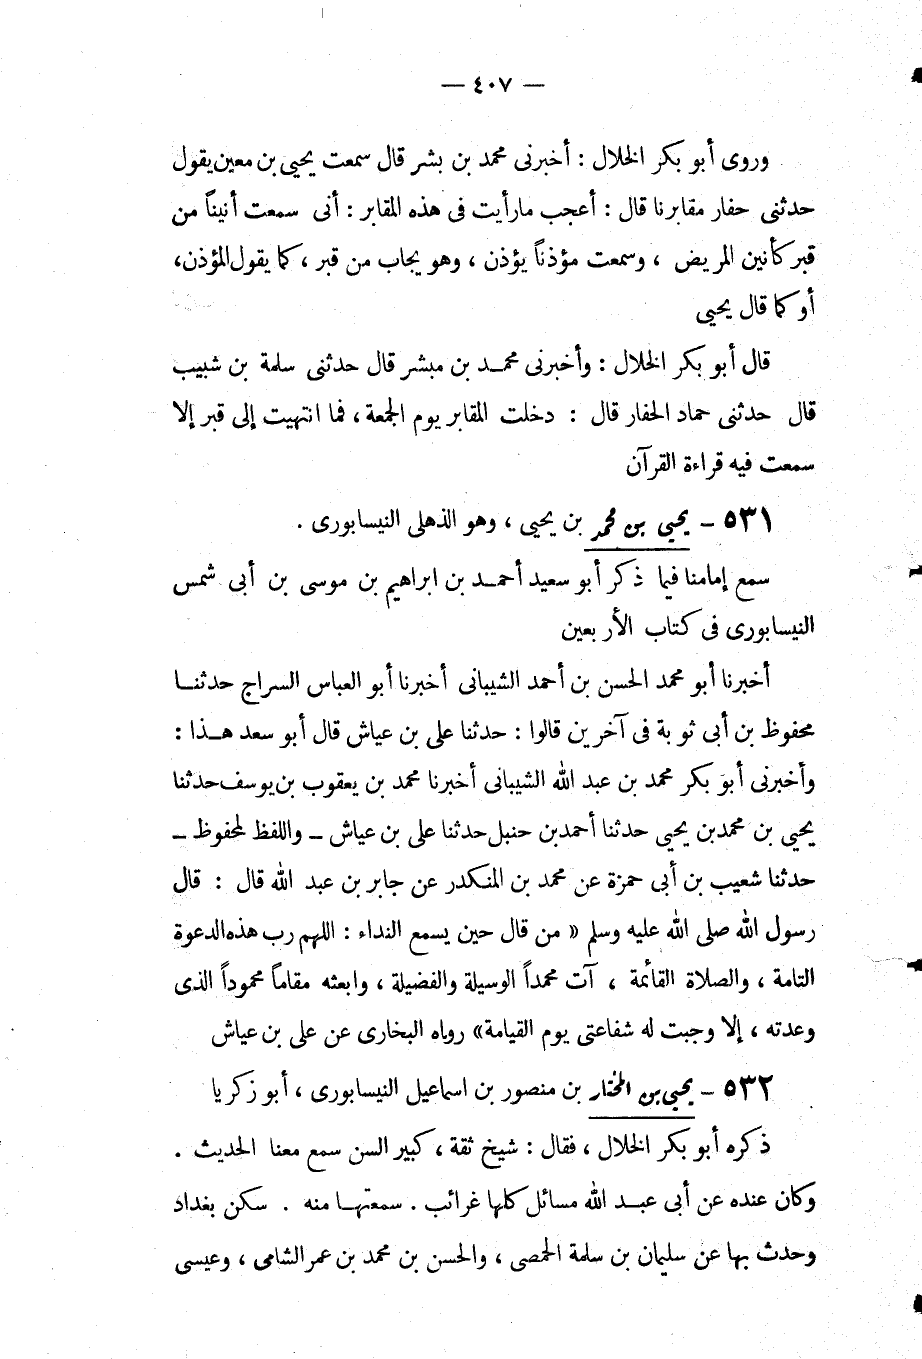 — ٤٠٧ —
وروى أبو بكر الخلال : أخبرنى محمد بن بشر قال سمعت يحيى بن معين يقول
حدثنى حفار مقابرنا قال : أعجب مارأيت فى هذه المقابر : أنى سمعت أنيناً من
قبر كأنين المريض ، وسمعت مؤذناً يؤذن ، وهو يجاب من قبر ، كما يقول المؤذن،
أو كما قال يحيى
قال أبو بكر الخلال : وأخبرنى محمد بن مبشر قال حدثنى سلمة بن شبيب
قال حدثنى حماد الحفار قال : دخلت المقابر يوم الجمعة ، فما انتهيت إلى قبر إلا
سمعت فيه قراءة القرآن
٥٣١ – يحيى بن محمد بن يحيى ، وهو الذهلى النيسابورى .
سمع إمامنا فيما ذكر أبو سعيد أحمد بن ابراهيم بن موسى بن أبى شمس
النيسابورى فى كتاب الأربعين
أخبرنا أبو محمد الحسن بن أحمد الشيبانى أخبرنا أبو العباس السراج حدثنا
محفوظ بن أبى ثوبة فى آخرين قالوا : حدثنا على بن عياش قال أبو سعد هذا :
وأخبرنى أبو بكر محمد بن عبد الله الشيبانى أخبرنا محمد بن يعقوب بن يوسف حدثنا
يحيى بن محمد بن يحيى حدثنا أحمد بن حنبل حدثنا على بن عياش – واللفظ لمحفوظ –
حدثنا شعيب بن أبى حمزة عن محمد بن المنكدر عن جابر بن عبد الله قال : قال
رسول الله صلى الله عليه وسلم « من قال حين يسمع النداء : اللهم رب هذه الدعوة
التامة ، والصلاة القائمة ، آت محمداً الوسيلة والفضيلة ، وابعثه مقاماً محموداً الذى
وعدته ، إلا وجبت له شفاعتى يوم القيامة» رواه البخارى عن على بن عياش
٥٣٢ – يحيى بن المختار بن منصور بن اسماعيل النيسابورى ، أبو زكريا
ذكره أبو بكر الخلال ، فقال : شيخ ثقة ، كبير السن سمع معنا الحديث .
وكان عنده عن أبى عبد الله مسائل كلها غرائب . سمعتها منه . سكن بغداد
وحدث بها عن سليمان بن سلمة الحمصى ، والحسن بن محمد بن عمر الشامى ، وعيسى